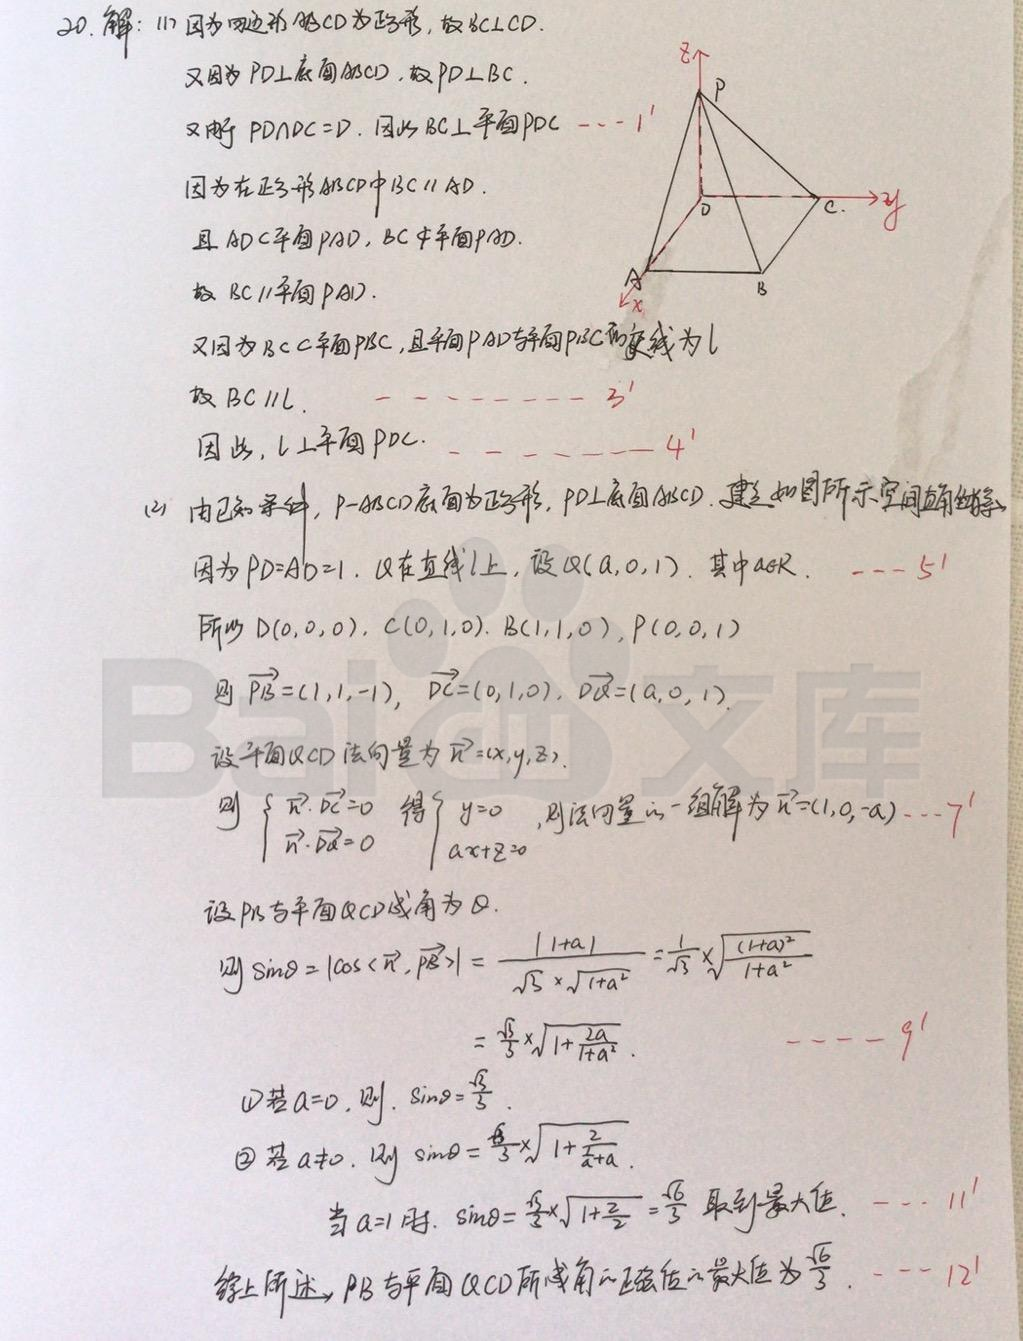 20. 解: (1) 因为四边形ABCD为正方形, 故BC⊥CD.
又因为 PD⊥底面ABCD, 故PD⊥BC.
又由于 PD∩DC=D. 因此 BC⊥平面PDC --- 1'
因为在正方形ABCD中BC∥AD.
且 AD⊂平面PAD, BC⊄平面PAD.
故 BC∥平面PAD.
又因为 BC⊂平面PBC, 且平面PAD与平面PBC的交线为l
故 BC∥l. -------- 3'
因此, l⊥平面PDC. ------ 4'
z
P
D
C.
y
A
B
x
(2) 由已知条件, P-ABCD底面为正方形, PD⊥底面ABCD. 建立如图所示空间直角坐标系
因为PD=AD=1. Q在直线l上, 设Q(a,0,1). 其中a∈R. --- 5'
所以 D(0,0,0). C(0,1,0). B(1,1,0), P(0,0,1)
则 PB=(1,1,-1), DC=(0,1,0). DQ=(a,0,1).
设平面QCD法向量为n=(x,y,z).
则 { n·DC=0 n·DQ=0 得 { y=0 ax+z=0 , 则法向量的一组解为n=(1,0,-a) --- 7'
设PB与平面QCD成角为θ.
则 sinθ=|cos<n,PB>| = |1+a| / √3×√1+a² = 1/√3 × √(1+a)²/1+a²
= √3/3 × √1+2a/1+a² . ---- 9'
① 若a=0. 则. sinθ=√3/3.
② 若a≠0. 则 sinθ=√3/3×√1+2/(1/a+a).
当a=1时. sinθ=√3/3×√1+2/2 = √6/3 取到最大值. --- 11'
综上所述, PB与平面QCD所成角的正弦值的最大值为√6/3. --- 12'
Baidu文库